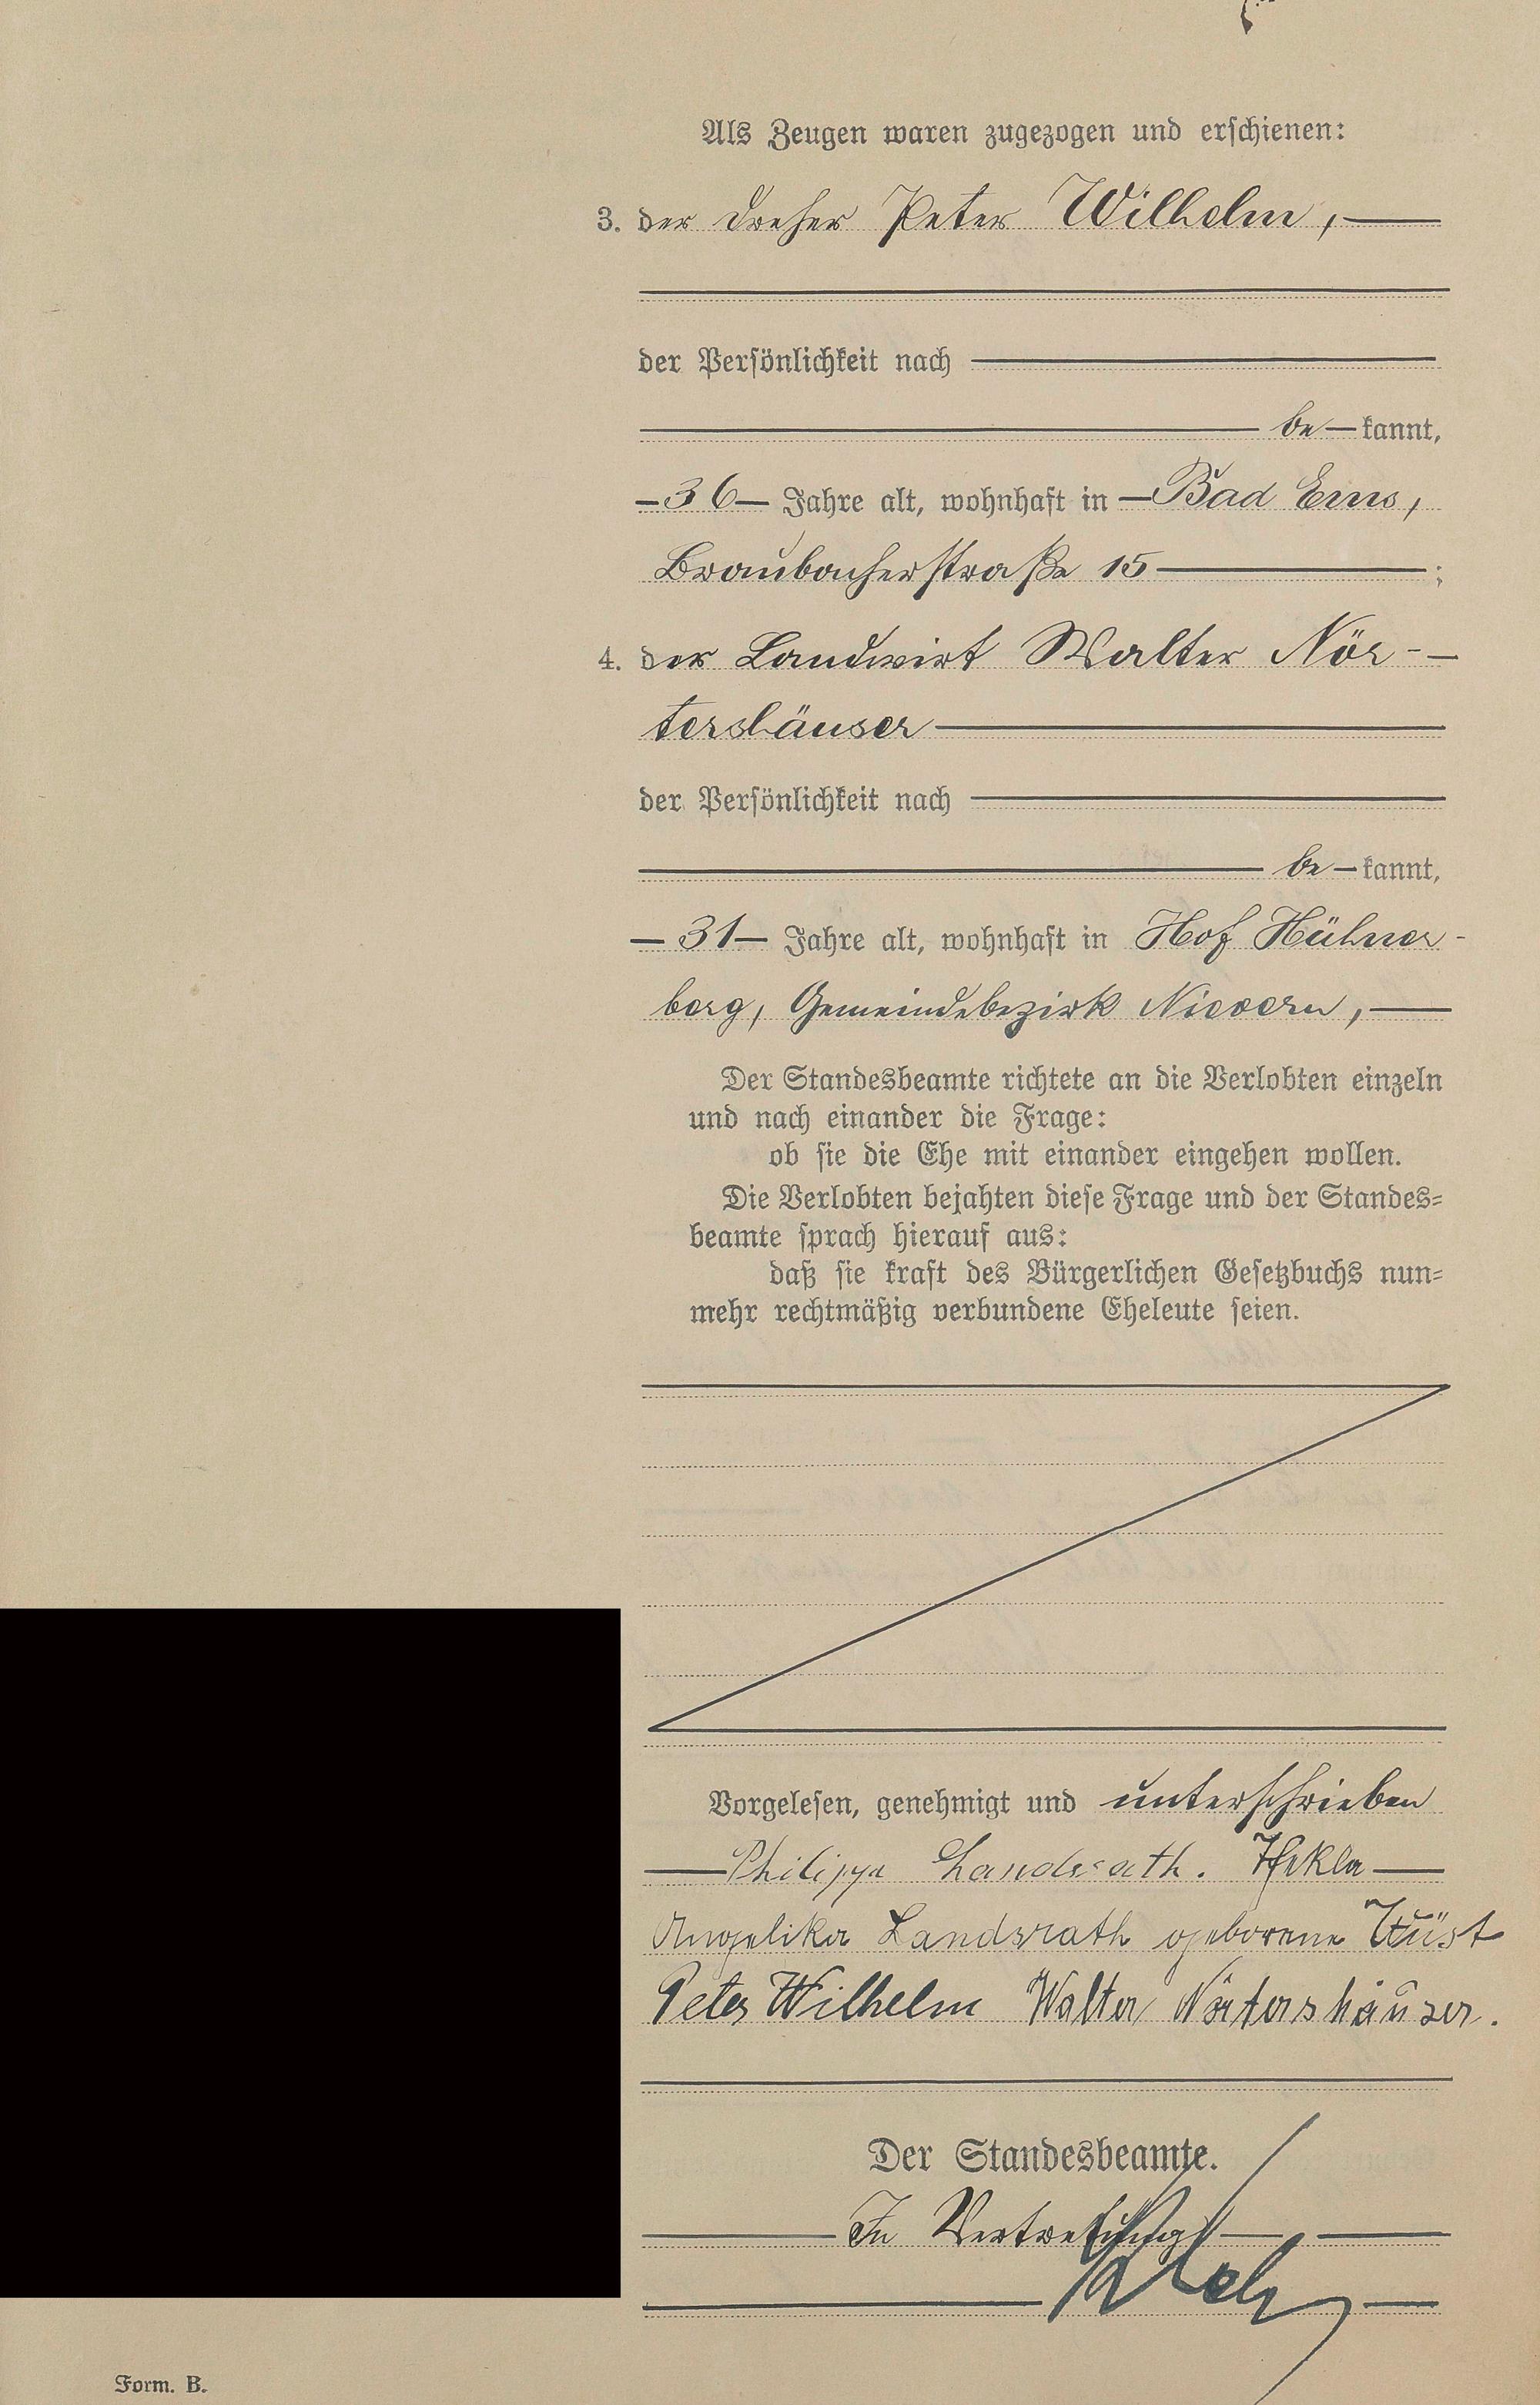 Als Zeugen waren zugezogen und erschienen:
3. der Dreher Peter Wilhelm,
der Persönlichkeit nach
be kannt,
36 Jahre alt, wohnhaft in Bad Ems,
Braubacherstraße 15 ;
4. der Landwirt Walter Nör-
tershäuser
der Persönlichkeit nach
be kannt,
31 Jahre alt, wohnhaft in Hof Hühner-
berg, Gemeindebezirk Nievern,
Der Standesbeamte richtete an die Verlobten einzeln
und nach einander die Frage:
ob sie die Ehe mit einander eingehen wollen.
Die Verlobten bejahten diese Frage und der Standes-
beamte sprach hierauf aus:
daß sie kraft des Bürgerlichen Gesetzbuchs nun-
mehr rechtmäßig verbundene Eheleute seien.
Vorgelesen, genehmigt und unterschrieben
Philipp Landsrath. Thekla
Angelika Landsrath geborene Wüst
Peter Wilhelm Walter Nörtershäuser.
Der Standesbeamte.
In Vertretung
Form. B.